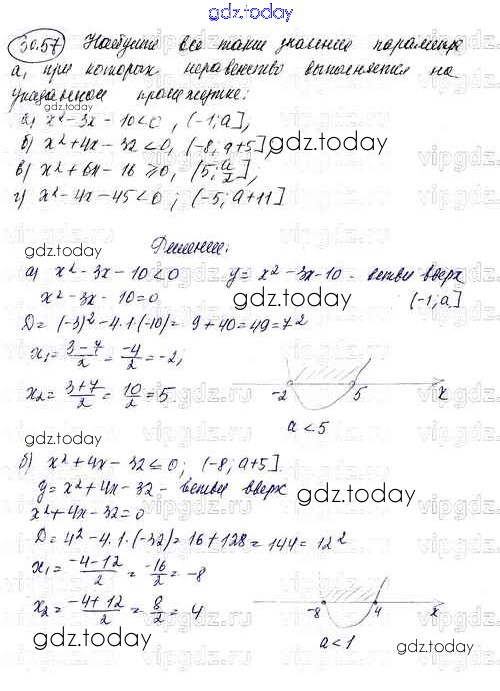 gdz.today
30.57 Найдите все такие значение параметра
а, при которых неравенство выполняется на
указанном промежутке:
а) x² - 3x - 10 < 0, (-1; a],
б) x² + 4x - 32 < 0, (-8; a+5]
в) x² + 6x - 16 ≥ 0, (5; a/2],
г) x² - 4x - 45 < 0; (-5; a+11]
gdz.today
gdz.today
Решение:
а) x² - 3x - 10 < 0 y = x² - 3x - 10 - ветви вверх
x² - 3x - 10 = 0 (-1; a]
gdz.today
D = (-3)² - 4·1·(-10) = 9 + 40 = 49 = 7²
x₁ = (3-7)/2 = -4/2 = -2;
x₂ = (3+7)/2 = 10/2 = 5
-2 5 x
a < 5
gdz.today
б) x² + 4x - 32 ≤ 0; (-8; a+5].
y = x² + 4x - 32 - ветви вверх
gdz.today
x² + 4x - 32 = 0
D = 4² - 4·1·(-32) = 16 + 128 = 144 = 12²
x₁ = (-4-12)/2 = -16/2 = -8
x₂ = (-4+12)/2 = 8/2 = 4
-8 4 x
a < 1
gdz.today
gdz.today